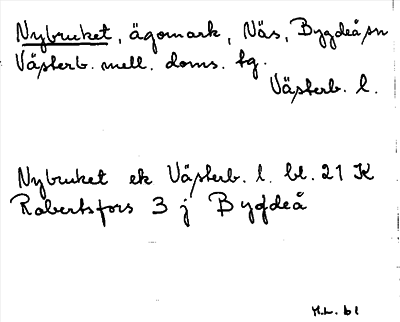 Nybruket, ägomark, Näs, Bygdeå sn
Västerb. mell. doms. tg.
Västerb. l.
Nybruket ek Västerb. l. bl. 21 K
Robertsfors 3 j Bygdeå